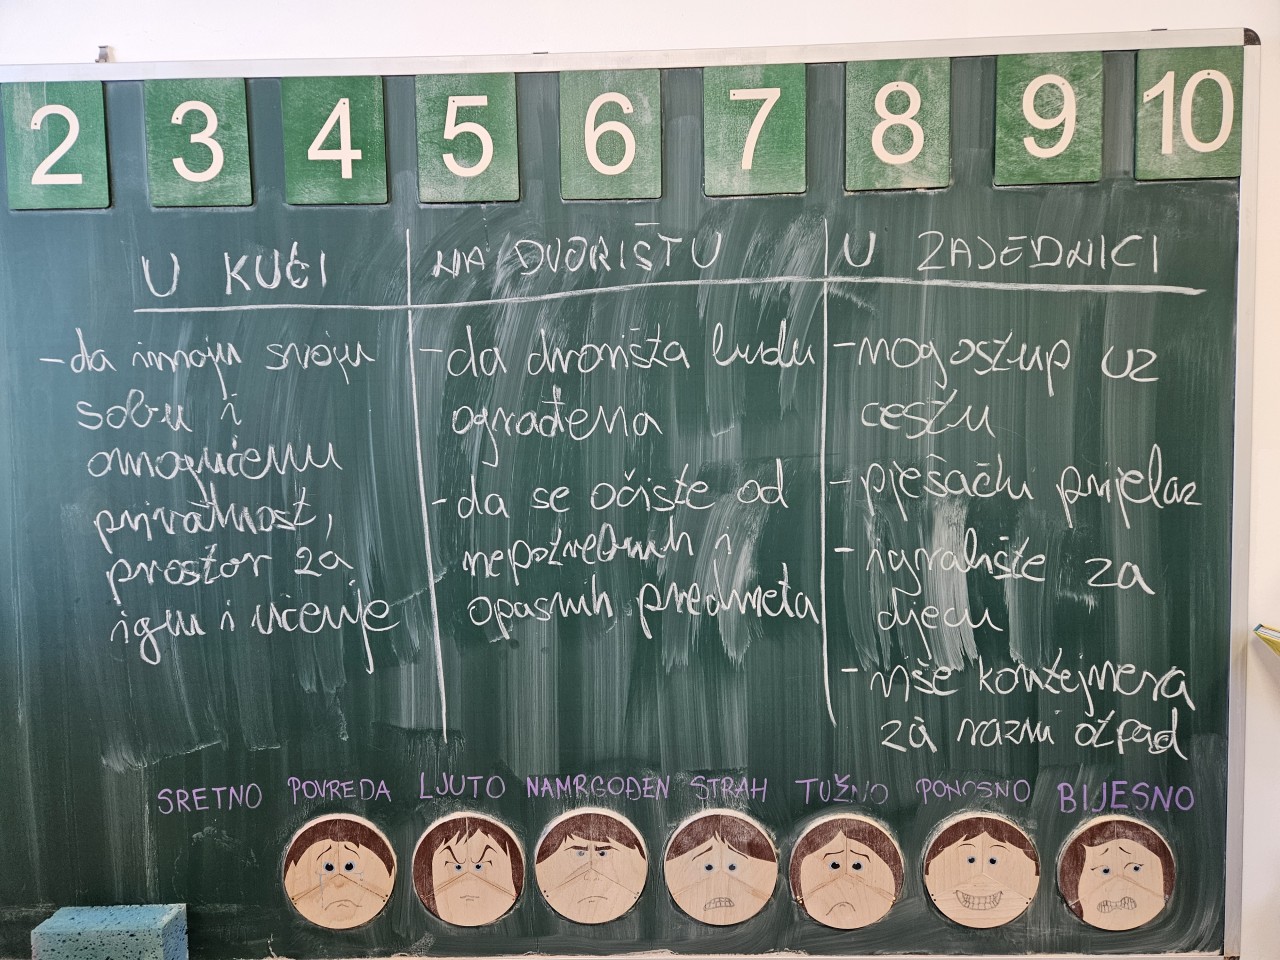 2 3 4 5 6 7 8 9 10
U KUĆI
- da imaju svoju
sobu i
omogućenu
privatnost,
prostor za
igru i učenje
NA DVORIŠTU
- da dvorišta budu
ograđena
- da se očiste od
nepotrebnih i
opasnih predmeta
U ZAJEDNICI
- nogostup uz
cestu
- pješački prijelaz
- igralište za
djecu
- više kontejnera
za razni otpad
SRETNO POVREDA LJUTO NAMRGOĐEN STRAH TUŽNO PONOSNO BIJESNO